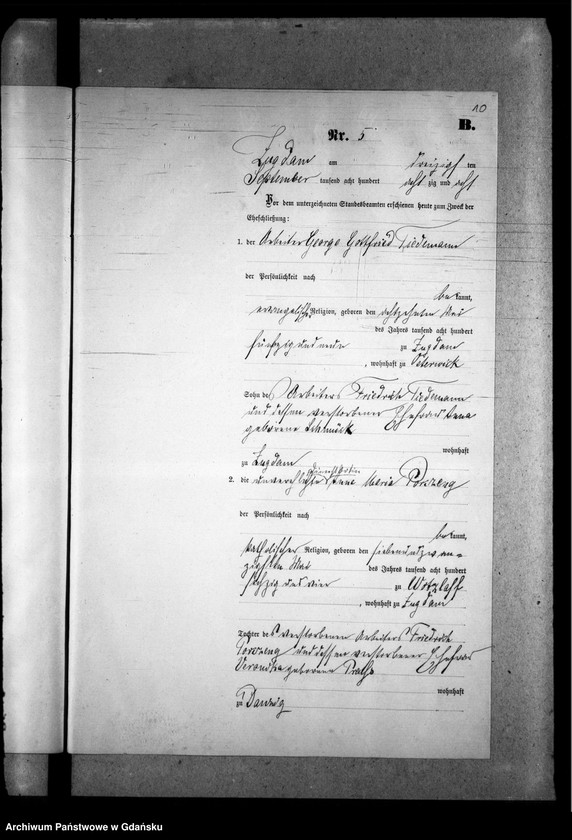 10
B.
Nr. 5
Zugdam am dreizigsten
September tausend acht hundert acht zig und acht
Vor dem unterzeichneten Standesbeamten erschienen heute zum Zweck der
Eheschließung:
1. der Arbeiter George Gottfried Tiedemann
der Persönlichkeit nach
bekannt,
evangelischer Religion, geboren den achtzehnten Mai
des Jahres tausend acht hundert
fünfzig und neun zu Zugdam
, wohnhaft zu Osterwick
Sohn des Arbeiters Friedrich Tiedemann
und dessen verstorbener Ehefrau Anna
geborene Schmuck
wohnhaft
zu Zugdam
2. die unverehelichte Anna Maria
der Persönlichkeit nach
bekannt,
katholischer Religion, geboren den siebenundzwan-
zigsten Mai des Jahres tausend acht hundert
sechzig und vier zu Wotzlaff
, wohnhaft zu Zugdam
Tochter des verstorbenen Arbeiters Friedrich
und dessen verstorbener Ehefrau
Veronika geborene
wohnhaft
zu Danzig
Archiwum Państwowe w Gdańsku